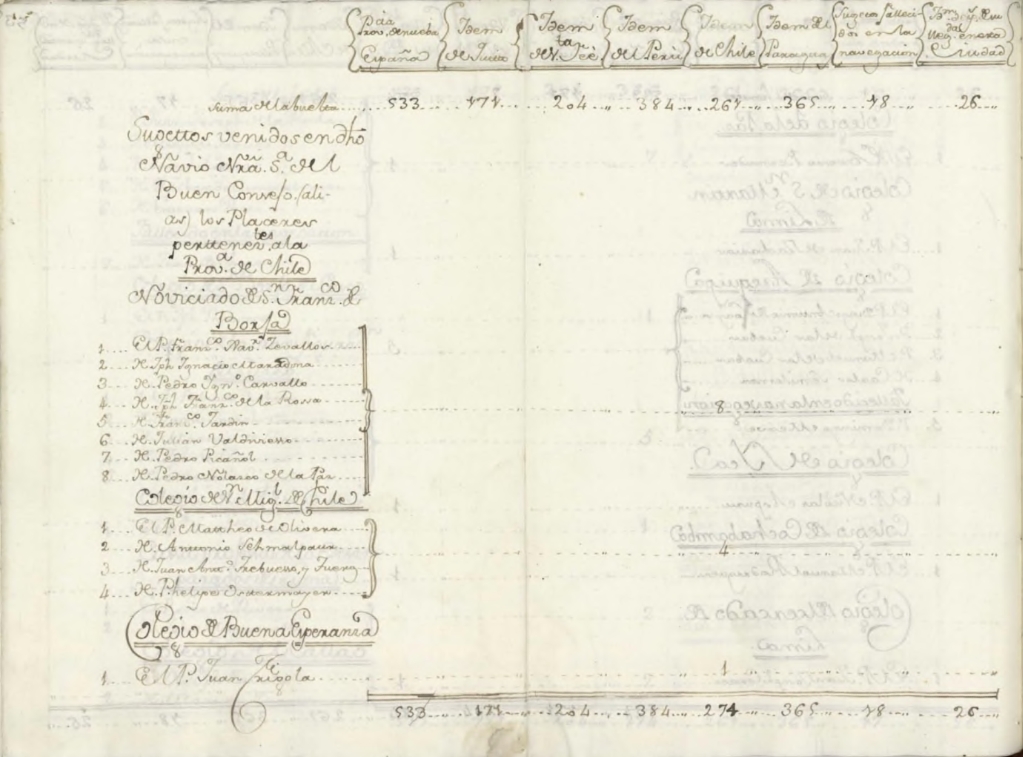 Prov. de nueba España
Idem de Quito
Idem de Sta. Fee
Idem del Perù
Idem de Chile
Idem del Paraguay
Sugetos falleci-dos en la navegacion
Ciudad
Suma de la buelta 533 171 204 384 261 365 18 26
Sugettos venidos en dho
Navio Nra. Sa. del
Buen Consejo (ali-
as) los Placeres
perttenectes. a la
Prova. de Chile
Noviciado de Sn. Franco. de
Borja
1 El P. Franco. Xavr. Zevallos
2 H. Jph Ignacio Maradona
3 H. Pedro Igno. Carvallo
4 H. Jph Franco. de la Rossa
5 H. Franco. Jardin 8
6 H. Julian Valdiviesso
7 H. Pedro Picañol
8 H. Pedro Nolasco de la Paz
Colegio de Sn. Migl. de Chile
1 El P. Mattheo de Olivera
2 H. Anttonio Schmalpaur 4
3 H. Juan Anto. y
4 H. Phelipe Ostermayer
Colegio de Buena Esperanza
1 El P. Juan Frigola 1
533 171 204 384 274 365 18 26